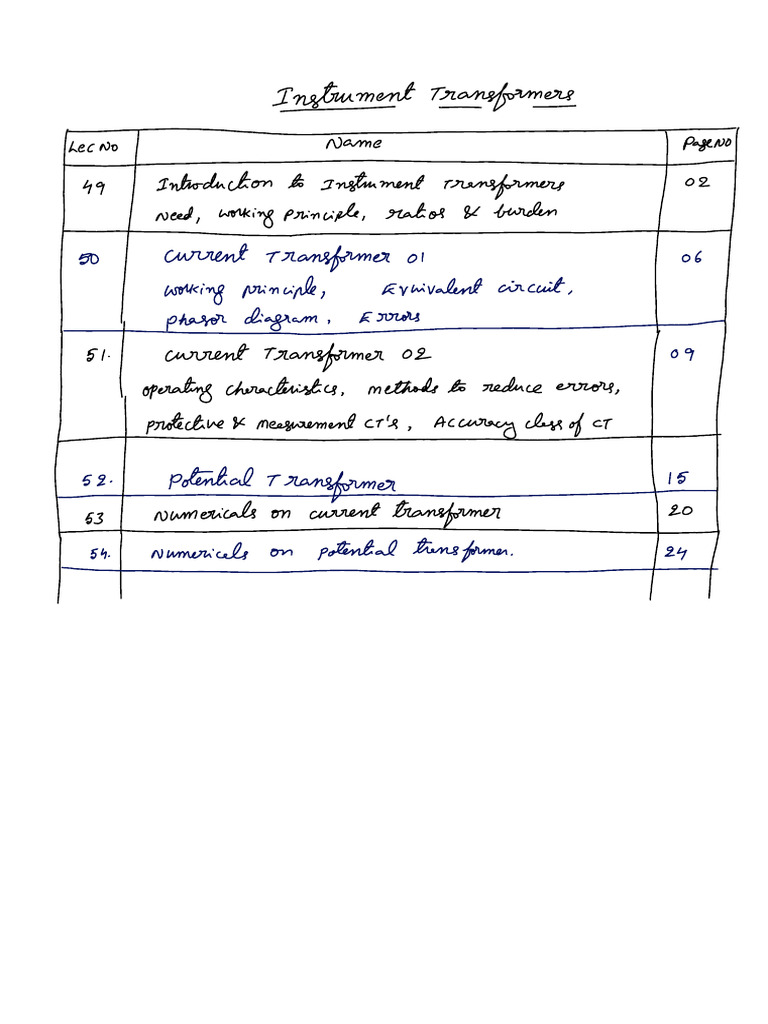 Instrument Transformers
Lec No Name Page No
49 Introduction to Instrument Transformers 02
Need, working principle, ratios & burden
50 Current Transformer 01 06
working principle, Equivalent circuit,
phasor diagram, Errors
51. Current Transformer 02 09
operating characteristics, methods to reduce errors,
protective & measurement CT's, Accuracy class of CT
52. Potential Transformer 15
53 Numericals on current transformer 20
54. Numericals on potential transformer. 24